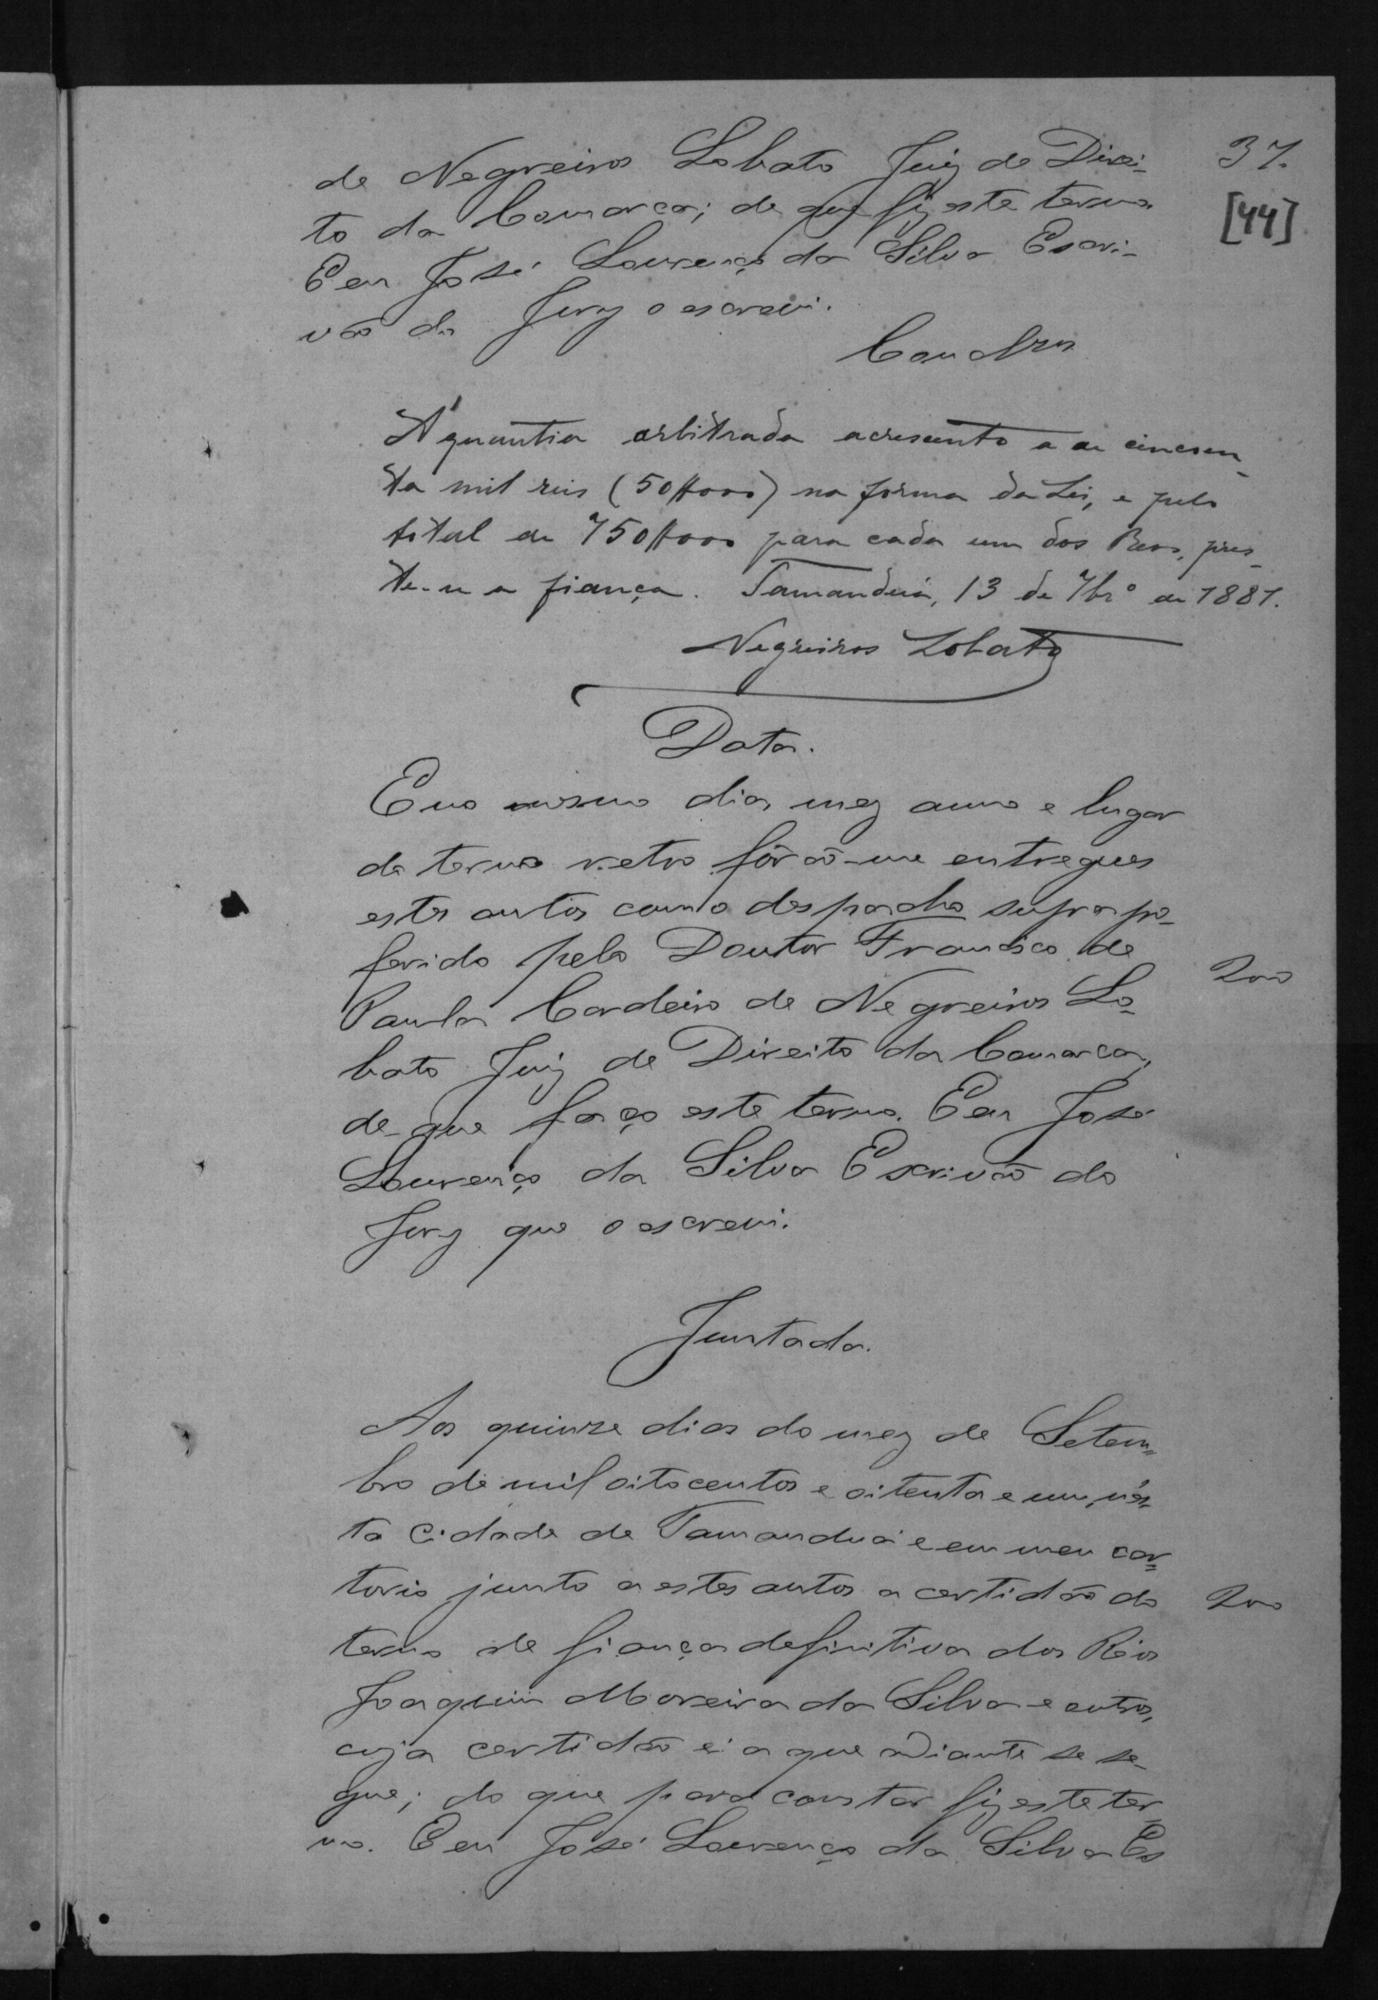 37.
[44]
de Negreiros Lobato Juiz de Direi-
to da Comarca; de que fiz este termo
Eeu José Lourenço da Silva Escri-
vão do Jury o escrevi.
Conclzos
A' quantia arbitrada acrescento a de cincoen-
ta mil reis (50$000) na forma da Lei, e pelo
total de 750$000 para cada um dos Reos, pres-
te-se a fiança. Tamanduá, 13 de 7brº de 1881.
Negreiros Lobato
Data.
E no mesmo dia mez anno e lugar
do termo retro fôrão-me entregues
estes autos com o despacho supra pro-
ferido pelo Doutor Francisco de
Paula Cordeiro de Negreiros Lo-
bato Juiz de Direito da Comarca,
de que faço este termo. Eeu José
Lourenço da Silva Escrivão do
Jury que o escrevi.
200
Juntada.
Aos quinze dias do mez de Setem=
bro de mil oitocentos e oitenta e um, nes-
ta Cidade de Tamanduá e em meu car=
torio junto a estes autos a certidão do
termo de fiança definitiva dos Réos
Joaquim Moreira da Silva e outros,
cuja certidão é a que adiante se se-
gue; do que para constar fiz este ter
mo. Eeu José Lourenço da Silva Es
200